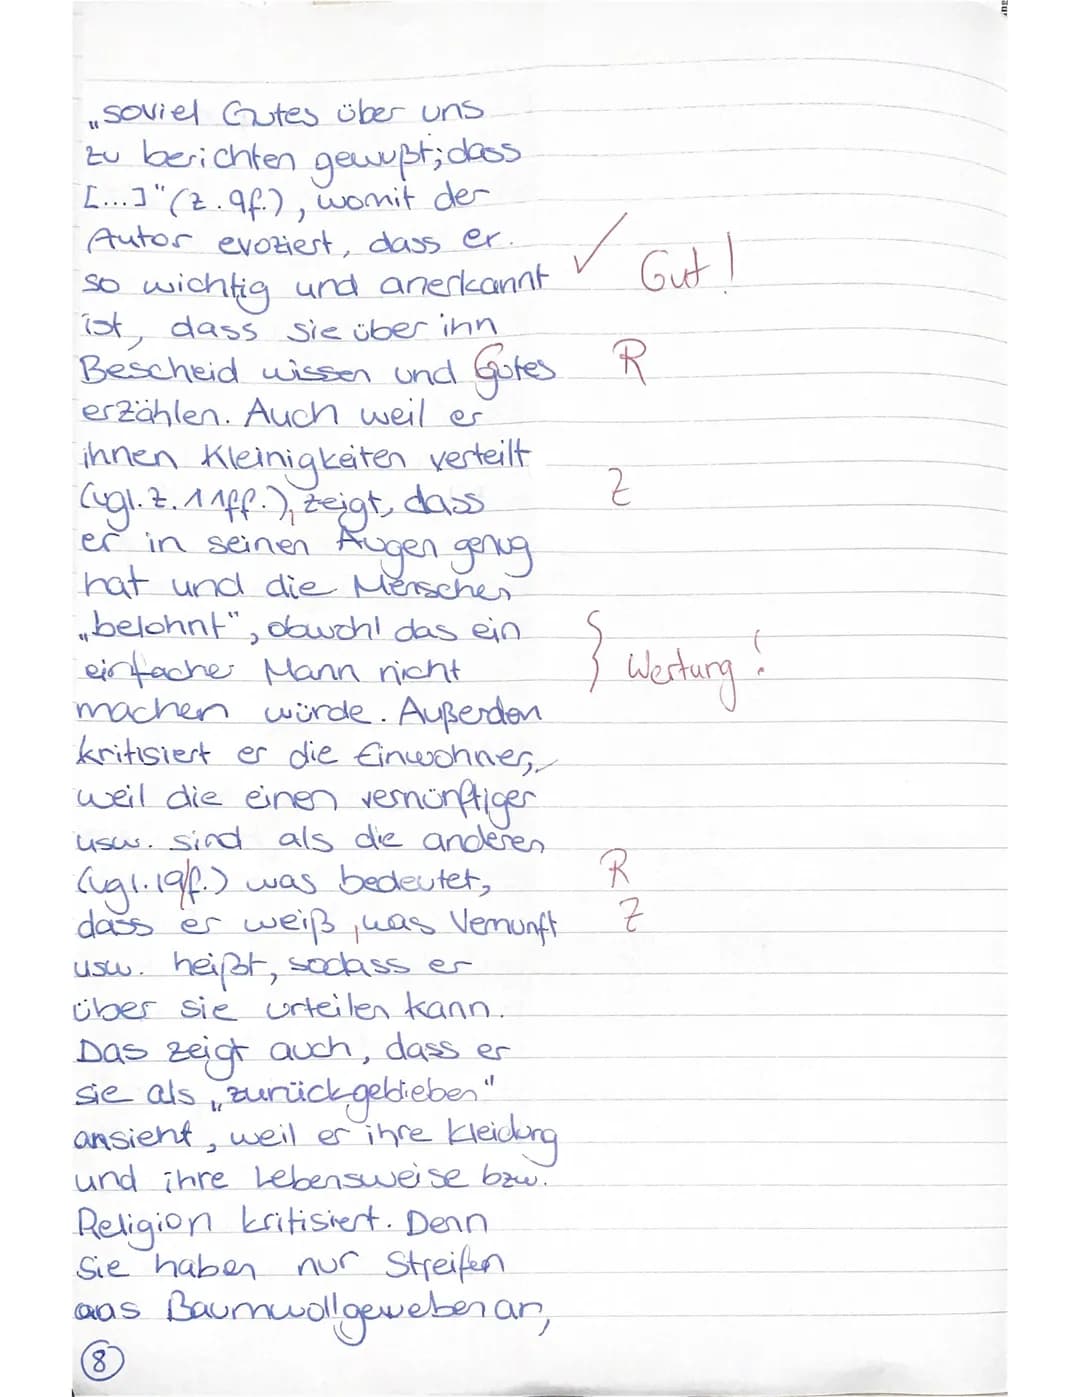 „soviel Gutes über uns
zu berichten gewußt; dass
[...]" (z. 9f.), womit der
Autor evoziert, dass er
so wichtig und anerkannt ✓ Gut!
ist, dass sie über ihn
Bescheid wissen und Gutes R
erzählen. Auch weil er
ihnen Kleinigkeiten verteilt
(vgl. z. 11ff.), zeigt, dass Z
er in seinen Augen genug
hat und die Menschen
„belohnt", obwohl das ein
einfacher Mann nicht } Wertung!
machen würde. Außerdem
kritisiert er die Einwohner,
weil die einen vernünftiger
usw. sind als die anderen
(vgl. 19f.) was bedeutet, R
dass er weiß, was Vernunft Z
usw. heißt, sodass er
über sie urteilen kann.
Das zeigt auch, dass er
sie als „zurückgeblieben"
ansieht, weil er ihre Kleidung
und ihre Lebensweise bzw.
Religion kritisiert. Denn
sie haben nur Streifen
aus Baumwollgeweben an,
8